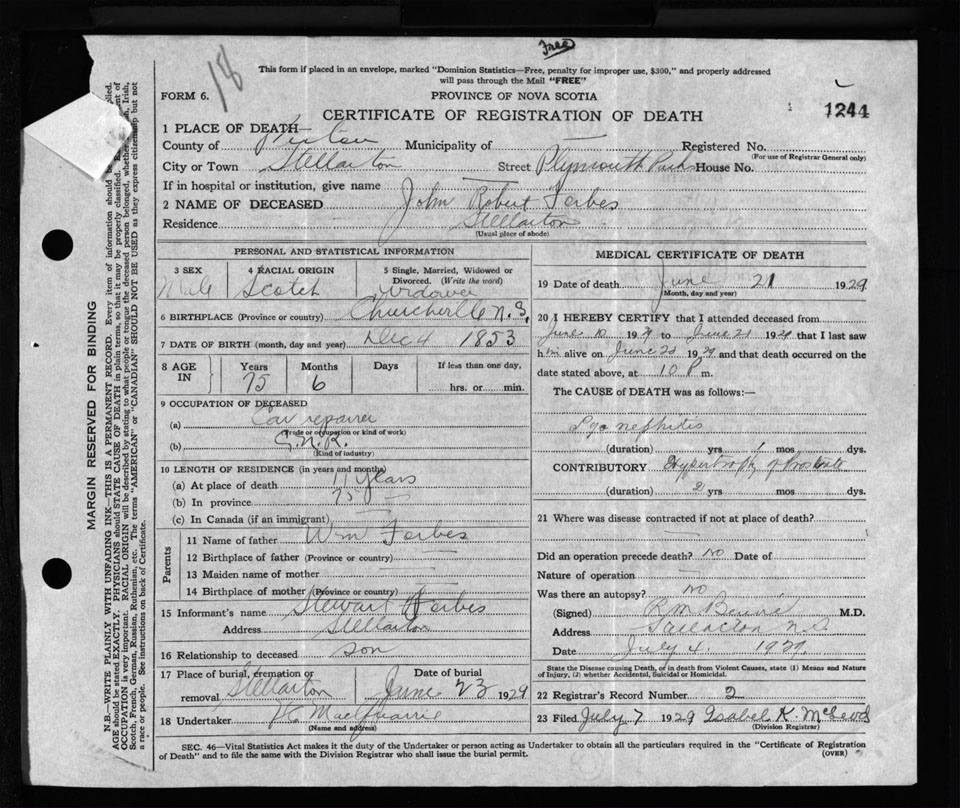 Free
18
This form if placed in an envelope, marked "Dominion Statistics—Free, penalty for improper use, $300," and properly addressed
will pass through the Mail "FREE"
FORM 6.
PROVINCE OF NOVA SCOTIA
1244
CERTIFICATE OF REGISTRATION OF DEATH
1 PLACE OF DEATH—
County of Pictou Municipality of — Registered No.
(For use of Registrar General only)
City or Town Stellarton Street Plymouth Park House No.
If in hospital or institution, give name —
2 NAME OF DECEASED John Robert Forbes
Residence Stellarton
(Usual place of abode)
PERSONAL AND STATISTICAL INFORMATION
3 SEX 4 RACIAL ORIGIN 5 Single, Married, Widowed or
Divorced. (Write the word)
Male Scotch Widower
6 BIRTHPLACE (Province or country) Churchville N.S.
7 DATE OF BIRTH (month, day and year) Dec 4 1853
8 AGE IN Years Months Days If less than one day,
75 6 hrs. or min.
9 OCCUPATION OF DECEASED
(a) Car repairer
(Trade or occupation or kind of work)
(b) C.N.R.
(Kind of industry)
10 LENGTH OF RESIDENCE (in years and months)
(a) At place of death years
(b) In province 75 —
(c) In Canada (if an immigrant) —
Parents
11 Name of father Wm Forbes
12 Birthplace of father (Province or country) —
13 Maiden name of mother —
14 Birthplace of mother (Province or country) —
15 Informant's name Stewart Forbes
Address Stellarton
16 Relationship to deceased son
17 Place of burial, cremation or
removal Stellarton
Date of burial
June 23 1929
18 Undertaker MacQuarrie
(Name and address)
MEDICAL CERTIFICATE OF DEATH
19 Date of death June 21 1929
(Month, day and year)
20 I HEREBY CERTIFY that I attended deceased from
June 10 1929 to June 20 1929 that I last saw
him alive on June 20 1929 and that death occurred on the
date stated above, at 10 P m.
The CAUSE OF DEATH was as follows:—
nephitis
(duration) yrs 1 mos dys.
CONTRIBUTORY Hypertrophy of Prostate
(duration) 2 yrs mos dys.
21 Where was disease contracted if not at place of death?
—
Did an operation precede death? No Date of
Nature of operation —
Was there an autopsy? No
(Signed) M.D.
Address N.S.
Date July 4 1929
State the Disease causing Death, or in death from Violent Causes, state (1) Means and Nature
of Injury, (2) whether Accidental, Suicidal or Homicidal.
22 Registrar's Record Number 2
23 Filed July 7 1929 Isabel K. McLeod
(Division Registrar)
SEC. 46—Vital Statistics Act makes it the duty of the Undertaker or person acting as Undertaker to obtain all the particulars required in the "Certificate of Registration
of Death" and to file the same with the Division Registrar who shall issue the burial permit.
(OVER)
MARGIN RESERVED FOR BINDING
N.B.—WRITE PLAINLY WITH UNFADING INK—THIS IS A PERMANENT RECORD. Every item of information should be
AGE should be stated EXACTLY. PHYSICIANS should STATE CAUSE OF DEATH in plain terms, so that it may be properly classified.
OCCUPATION is very important. RACIAL ORIGIN will be described by stating to what people or tongue the deceased person belonged, whether Irish,
Scotch, French, German, Russian, Ruthenian, etc. The terms "AMERICAN" or "CANADIAN" SHOULD NOT BE USED as they express citizenship but not
a race or people. See instructions on back of Certificate.